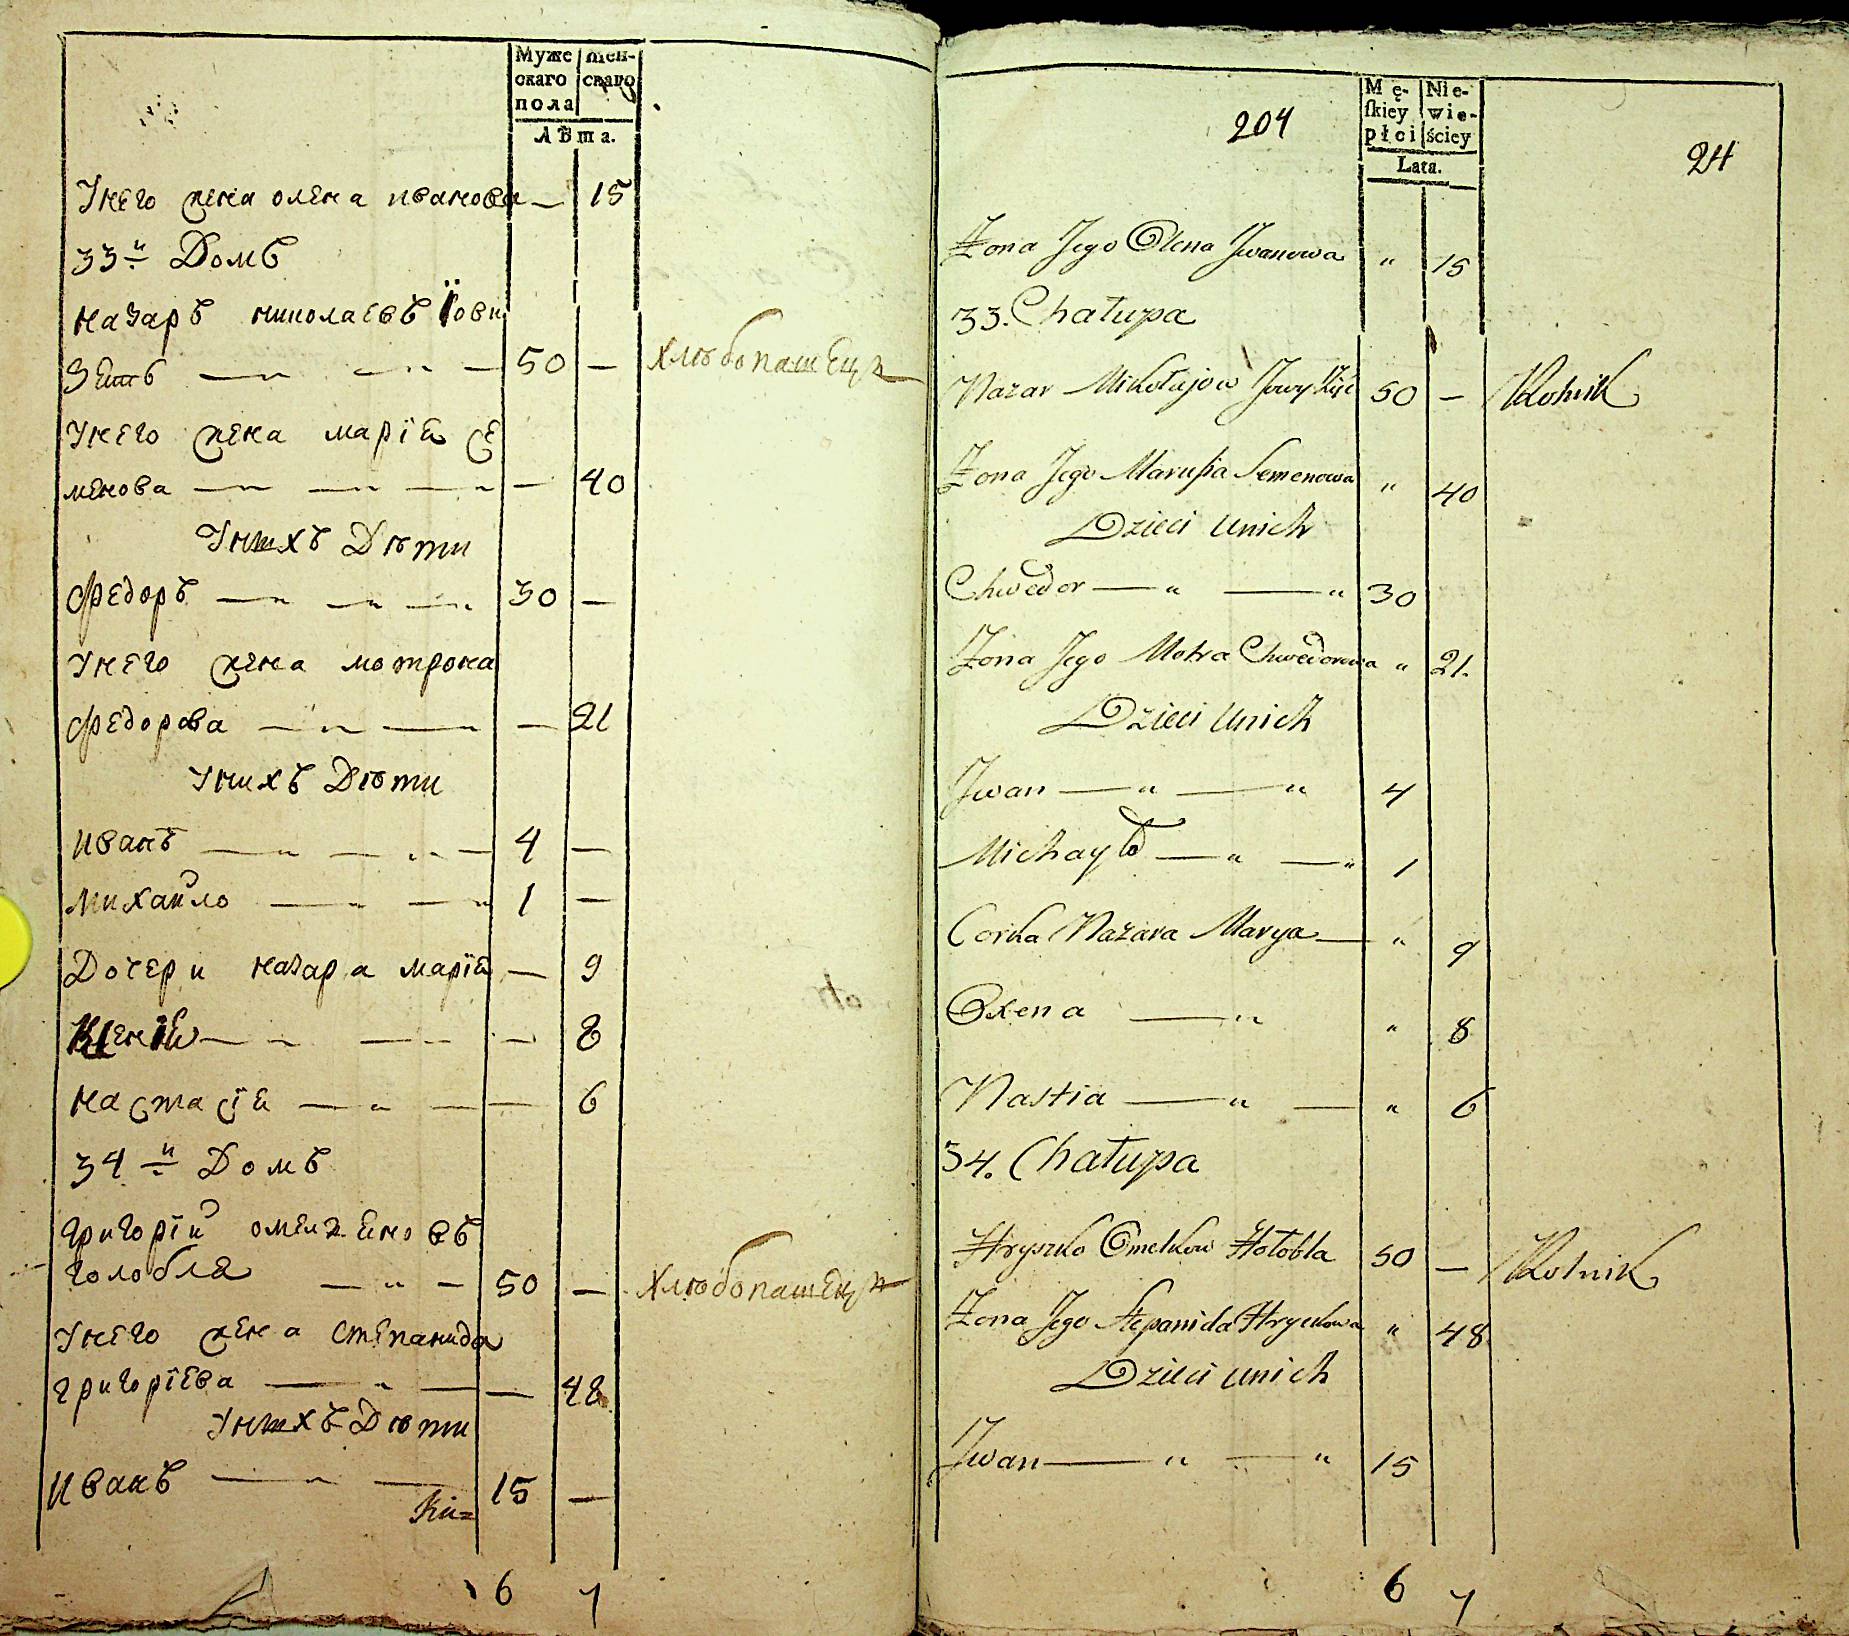 Муже
скаго
пола
жен-
скаго
Лѣта.
Унего жена олена иванова — 15
33й Домъ
назаръ николаевъ Їови
Зять — 50 — хлѣбопашецъ
Унего жена марїя се
менова — 40
Унихъ Дѣти
Федоръ — 30 —
Унего жена мотрона
Федорова — 21
Унихъ Дѣти
иванъ — 4 —
михайло — 1 —
Дочери назара марїя — 9
— 8
настасїя — 6
34й Домъ
григорїй омельяновъ
голобля — 50 — хлѣбопашецъ
Унего жена степанида
григорїева — 48
Унихъ Дѣти
иванъ — 15 —
Ки=
6 7
204
Mę-
ſkiey
płci
Nie-
wie-
ściey
Lata.
24
Żona Jego Olena Jwanowa " 15
33. Chałupa
Nazar Mikołajow 50 — Rolnik
Żona Jego Marusia Semenowa " 40
Dzieci Unich
Chwedor — " — " 30
Żona Jego Motra Chwedorowa " 21.
Dzieci Unich
Jwan — " — " 4
Michayło — " — " 1
Corka Nazara Marya — " 9
Oxena — " " 8
Nastia — " — " 6
34. Chałupa
Hryszko Omelkow Hołobla 50 — Rolnik
Żona Jego Stepanida Hryckowa " 48
Dzieci Unich
Jwan — " — " 15
6 7